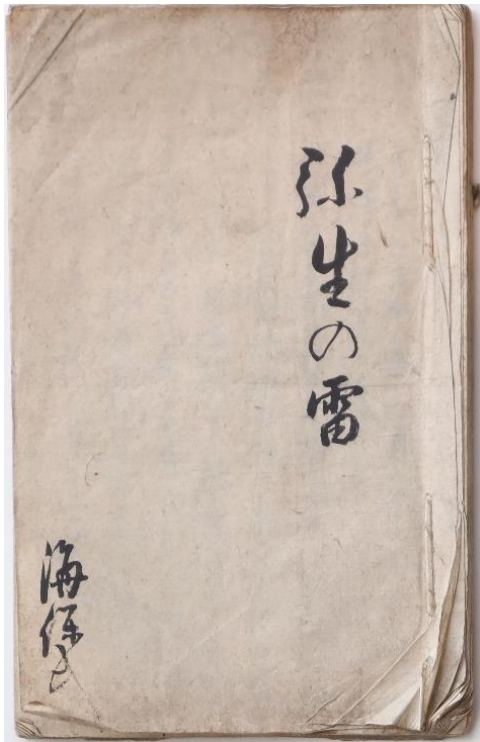 弥生の雷
海保